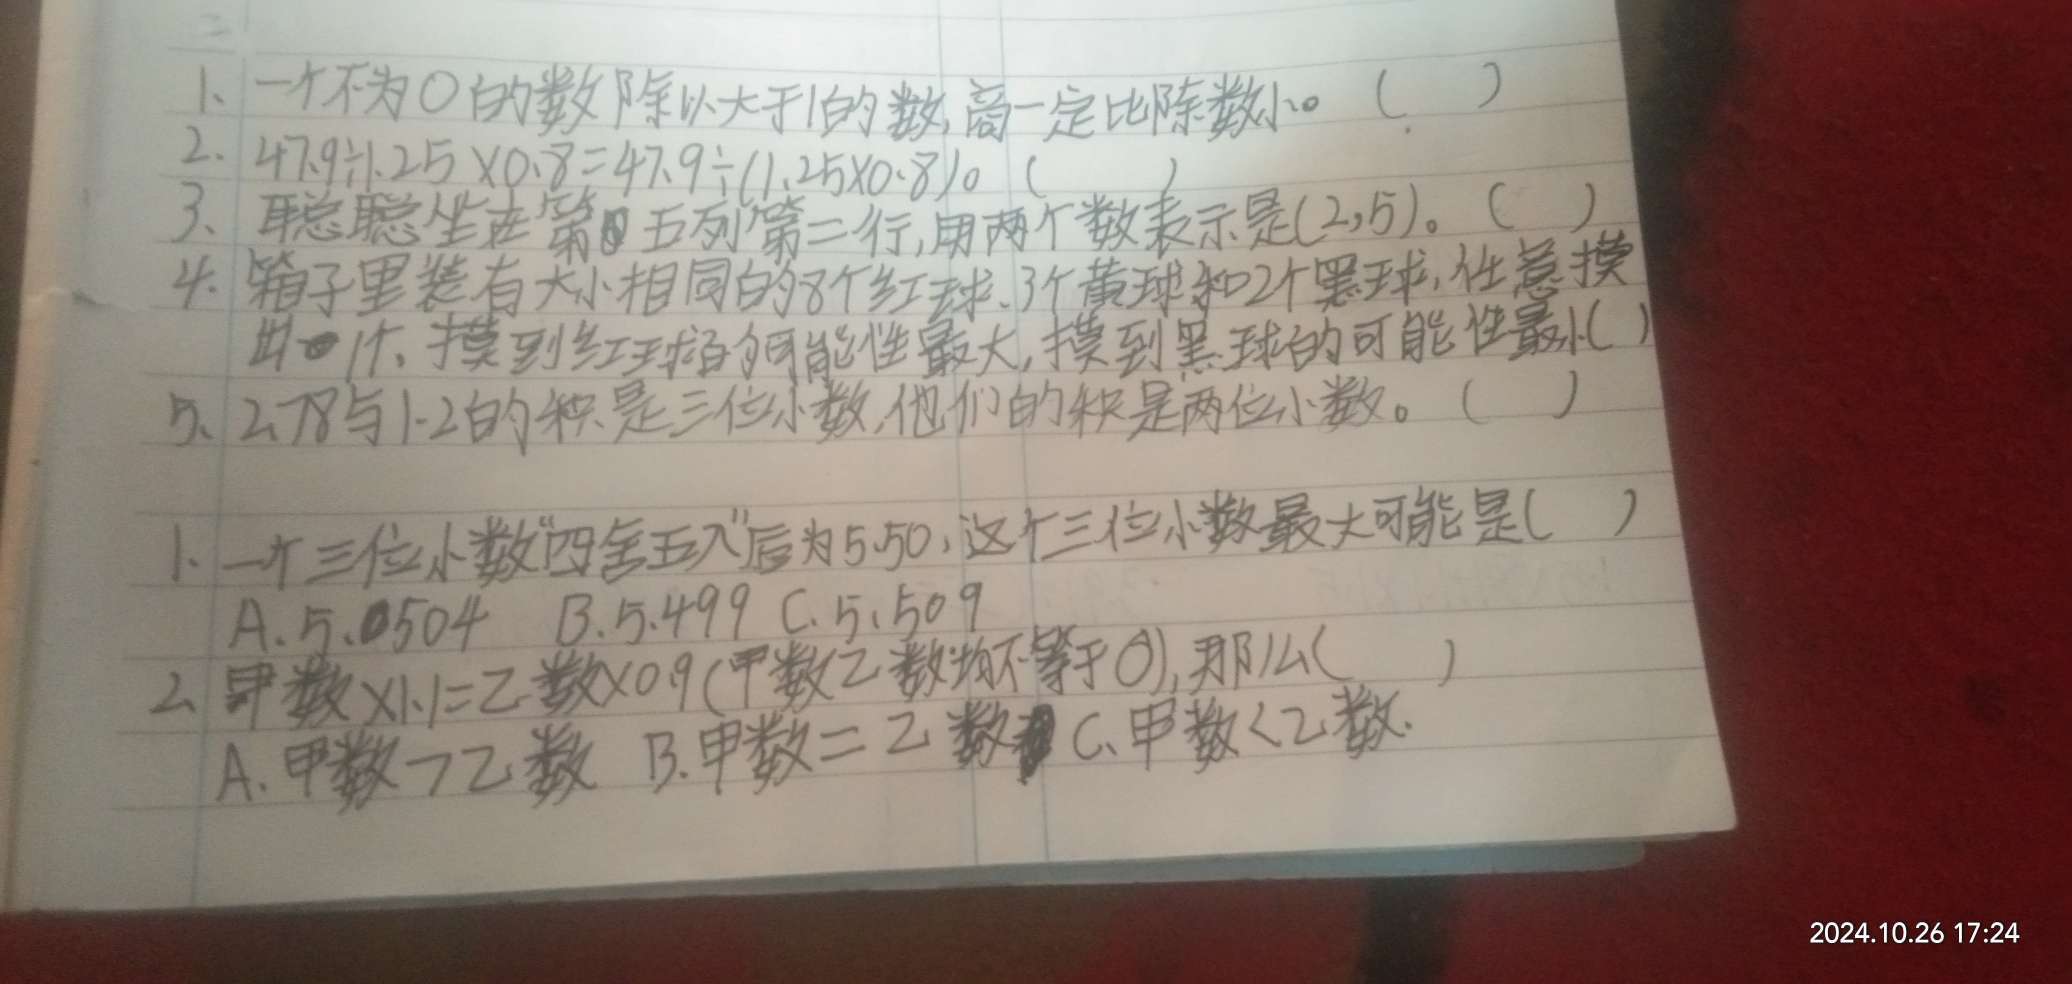 二
1、一个不为0的数除以大于1的数,商一定比除数小。( )
2. 47.9÷1.25×0.8=47.9÷(1.25×0.8)。( )
3、聪聪坐在第五列第二行,用两个数表示是(2,5)。( )
4. 箱子里装有大小相同的8个红球、3个黄球和2个黑球,任意摸
出1个、摸到红球的可能性最大,摸到黑球的可能性最小( )
5、2.78与1.2的积是三位小数,他们的积是两位小数。( )
1. 一个三位小数“四舍五入”后为5.50,这个三位小数最大可能是( )
A.5.504 B.5.499 C.5.509
2、甲数×1.1=乙数×0.9(甲数乙数均不等于0),那么( )
A.甲数>乙数 B.甲数=乙数 C、甲数<乙数.
2024.10.26 17:24